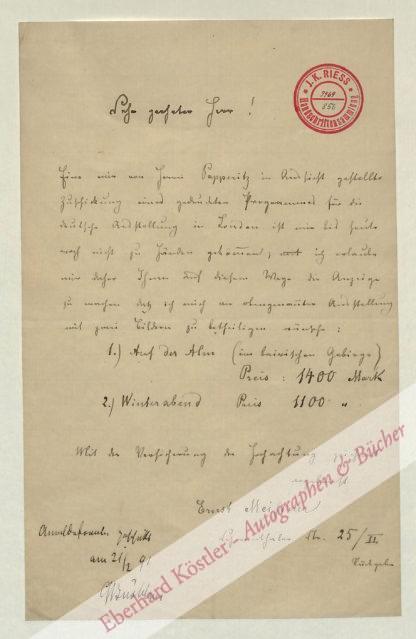 Sehr geehrter Herr!
J. K. RIESS
Handschriftensammlung
Eine mir von Herrn Papperitz in Aussicht gestellte
Zuschickung eines gedruckten Programmes für die
deutsche Ausstellung in London ist mir bis heute
noch nicht zu Händen gekommen, ich erlaube
mir daher Ihnen auf diesem Wege die Anzeige
zu machen daß ich mich an obengenannter Ausstellung
mit zwei Bildern zu betheiligen wünsche:
1.) Auf der Alm (im bairischen Gebirge)
Preis: 1400 Mark
2.) Winterabend Preis 1100 "
Mit der Versicherung der Hochachtung
Ernst
25/II
am
Eberhard Köstler Autographen & Bücher